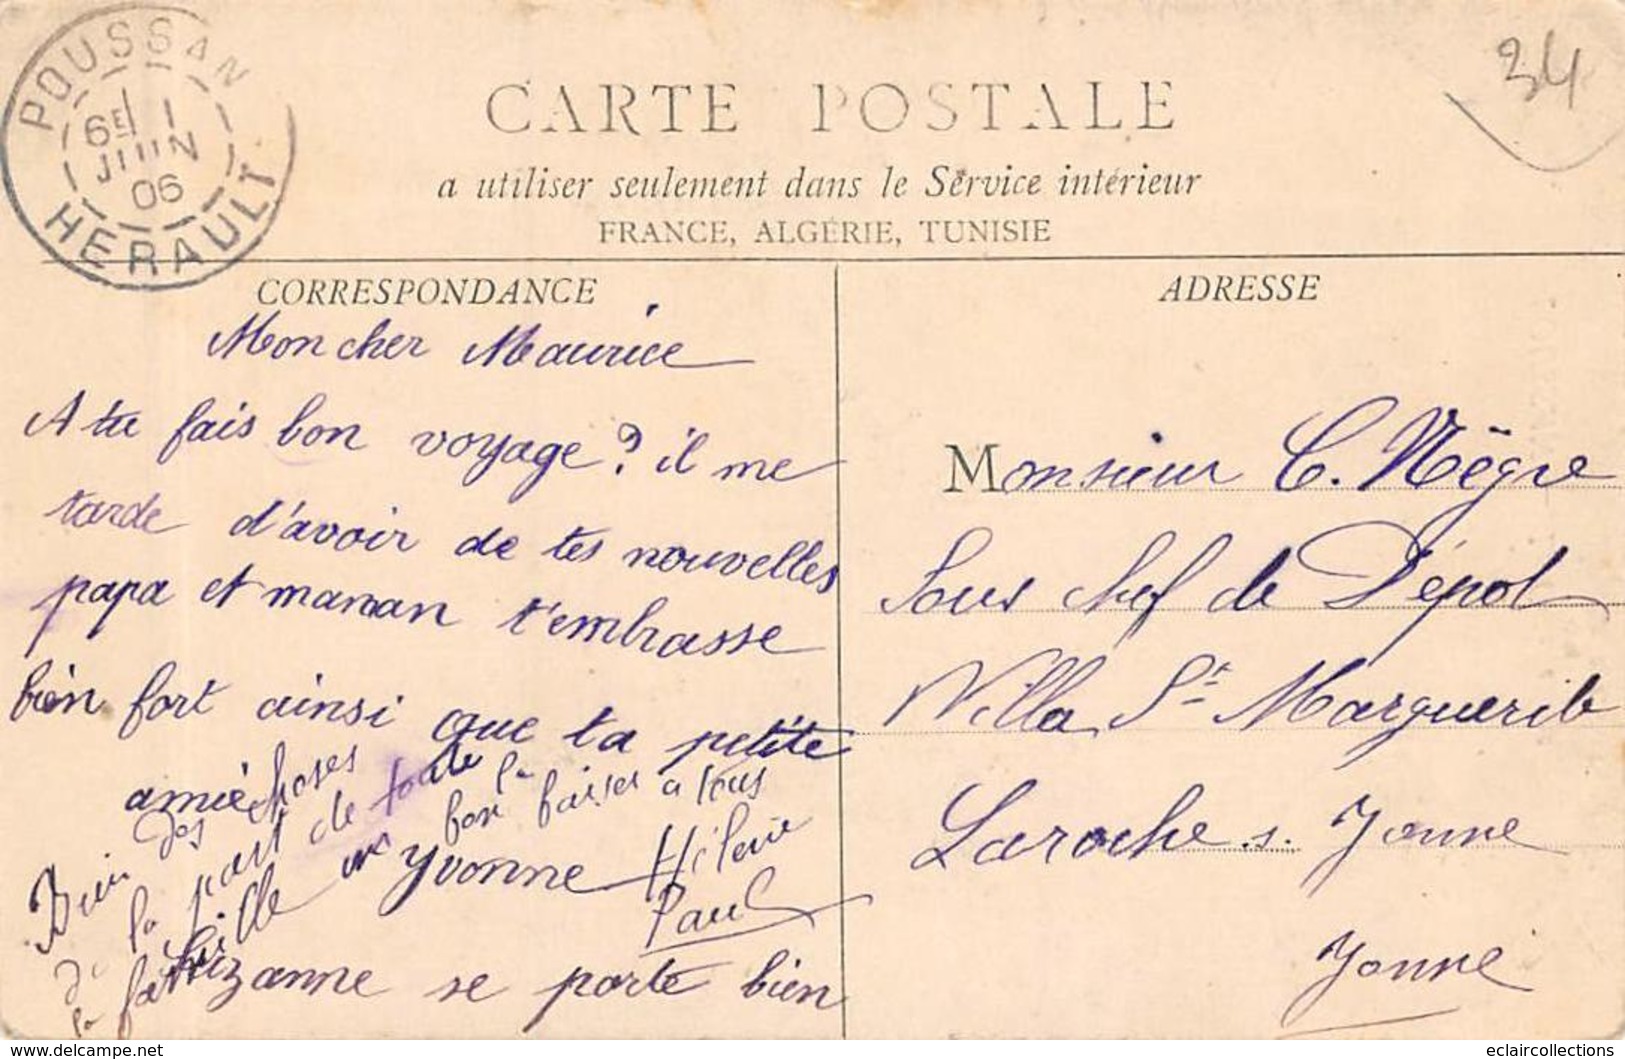 POUSSAN
6E 1
JUIN
06
HERAULT
34
CARTE POSTALE
a utiliser seulement dans le Service intérieur
FRANCE, ALGÉRIE, TUNISIE
CORRESPONDANCE
Mon cher Maurice
A tu fais bon voyage? il me
tarde d'avoir de tes nouvelles
papa et maman t'embrasse
bien fort ainsi que ta petite
amie
Yvonne
Suzanne se porte bien
Bien des choses
de la part de toute
la famille un bon baiser a tous
Hélène
Paul
ADRESSE
Monsieur C. Nègre
Sous chef de Dépot
Villa Ste Marguerite
Laroche s. Yonne
Yonne
eclaircollections